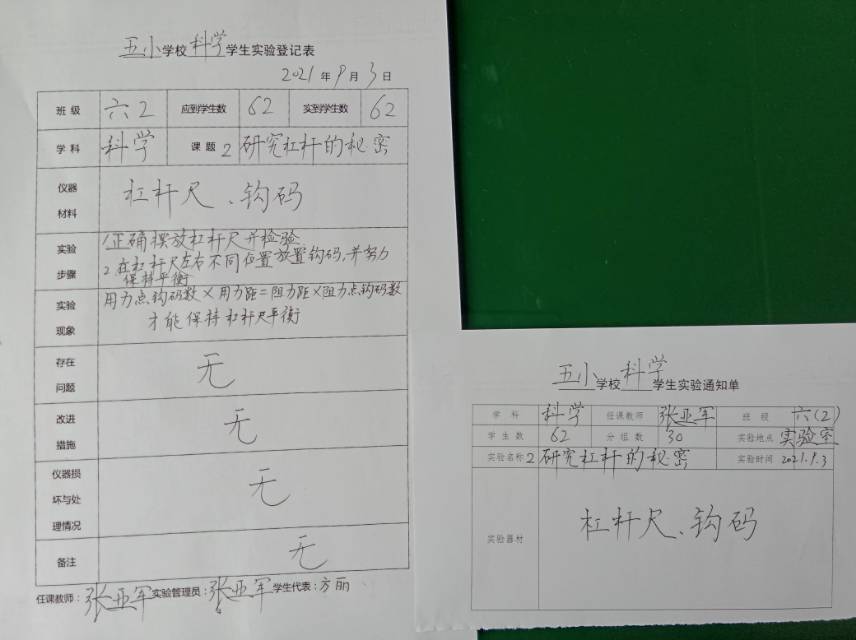 五小学校科学学生实验登记表
2021年9月3日
班级 六2 应到学生数 62 实到学生数 62
学科 科学 课题 2 研究杠杆的秘密
仪器材料 杠杆尺、钩码
实验步骤 1.正确摆放杠杆尺并检验
2.在杠杆尺左右不同位置放置钩码,并努力
保持平衡
实验现象 用力点钩码数×用力距=阻力距×阻力点钩码数
才能保持杠杆尺平衡
存在问题 无
改进措施 无
仪器损坏与处理情况 无
备注 无
任课教师:张亚军 实验管理员:张亚军 学生代表:方丽
五小学校科学学生实验通知单
学科 科学 任课教师 张亚军 班级 六(2)
学生数 62 分组数 30 实验地点 实验室
实验名称 2 研究杠杆的秘密 实验时间 2021.9.3
实验器材 杠杆尺、钩码